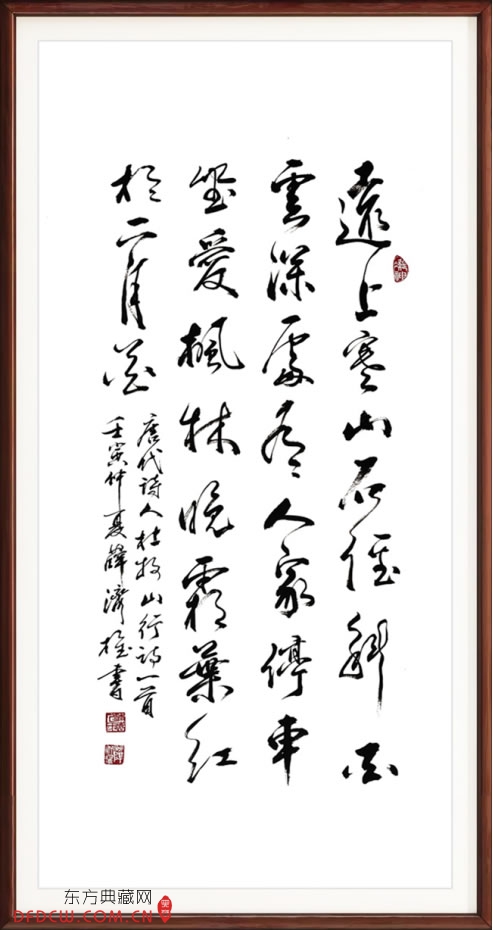 遠上寒山石徑斜白
雲深處有人家停車
坐愛楓林晚霜葉紅
於二月花
唐代詩人杜牧山行詩一首
壬寅仲夏薛濟書
东方典藏网
DFDCW.COM.CN